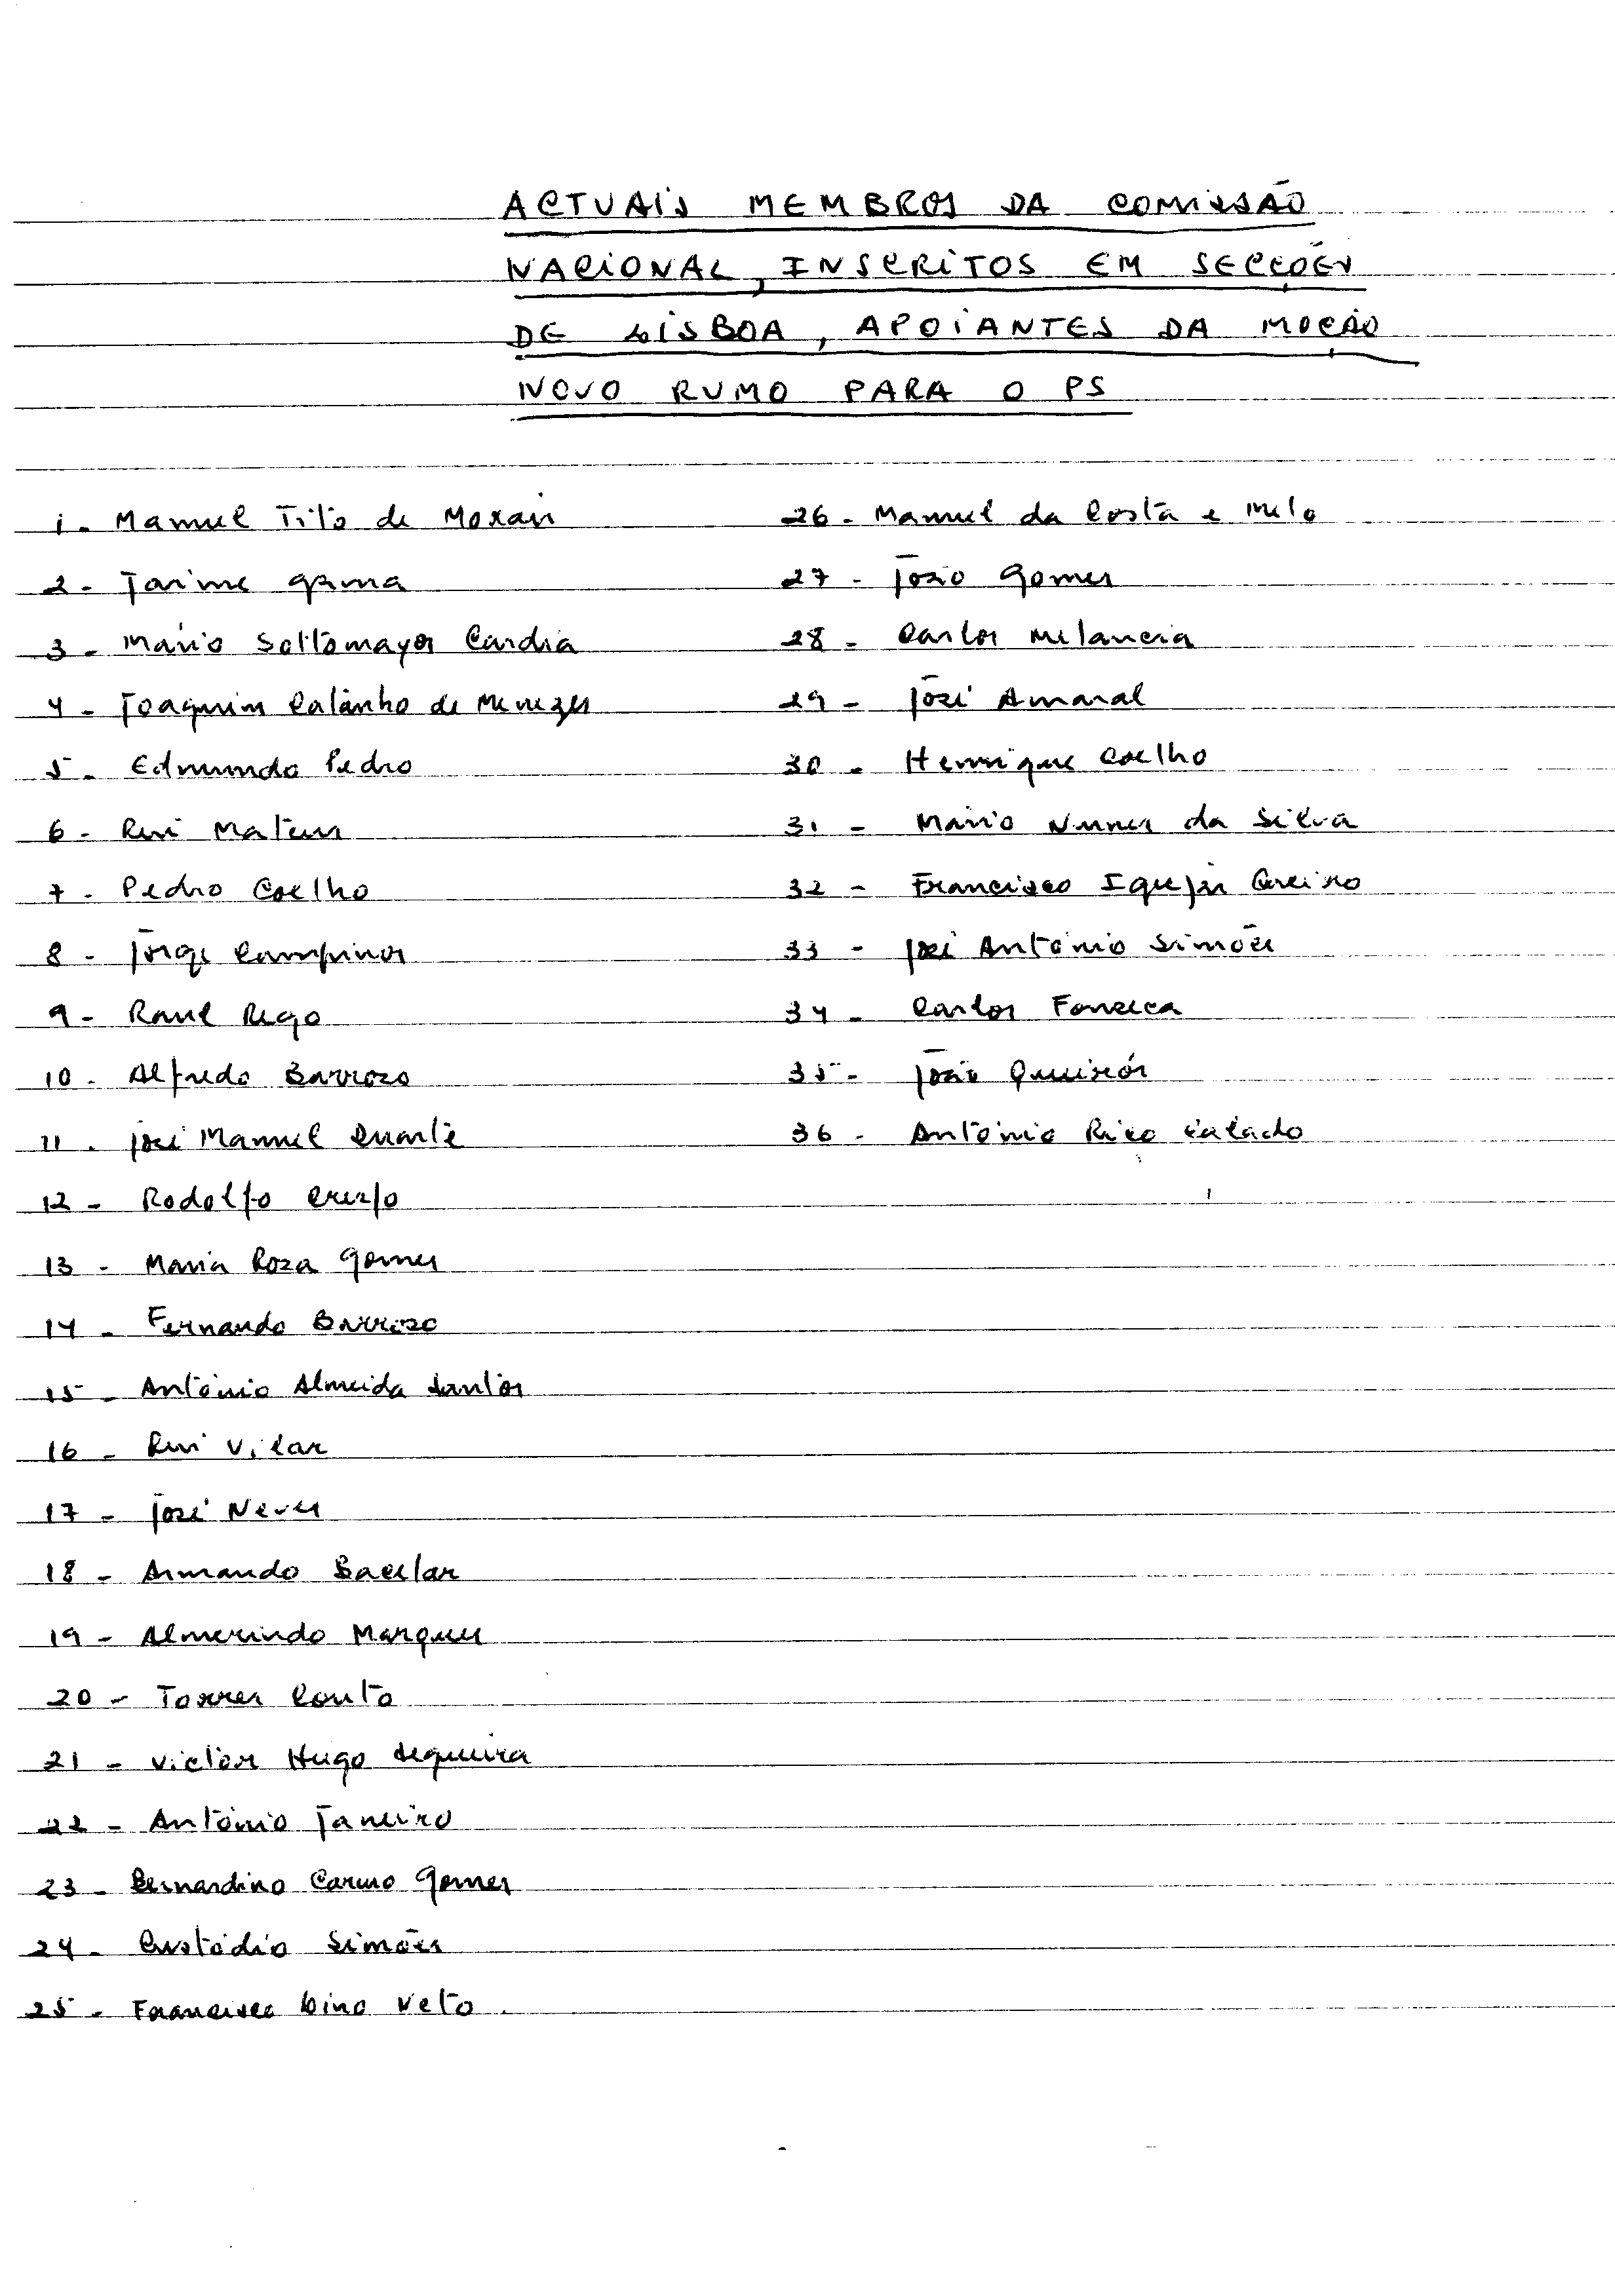 ACTUAIS MEMBROS DA COMISSÃO
NACIONAL, INSCRITOS EM SECÇÕES
DE LISBOA, APOIANTES DA MOÇÃO
NOVO RUMO PARA O PS
1 - Manuel Tito de Morais
2 - Jaime Gama
3 - Mário Sottomayor Cardia
4 - Joaquim Catanho de Menezes
5 - Edmundo Pedro
6 - Rui Mateus
7 - Pedro Coelho
8 - Jorge Campinos
9 - Raul Rego
10 - Alfredo Barroso
11 - José Manuel Duarte
12 - Rodolfo Crespo
13 - Maria Rosa Gomes
14 - Fernando Barroso
15 - António Almeida Santos
16 - Rui Vilar
17 - José Neves
18 - Armando Bacelar
19 - Almerindo Marques
20 - Torres Couto
21 - Victor Hugo Sequeira
22 - António Janeiro
23 - Bernardino Carmo Gomes
24 - Custódio Simões
25 - Francisco Lino Neto
26 - Manuel da Costa e Melo
27 - João Gomes
28 - Carlos Melancia
29 - José Amaral
30 - Henrique Coelho
31 - Mário Nunes da Silva
32 - Francisco Igrejas Caeiro
33 - José António Simões
34 - Carlos Fonseca
35 - João Queirós
36 - António Rico Calado